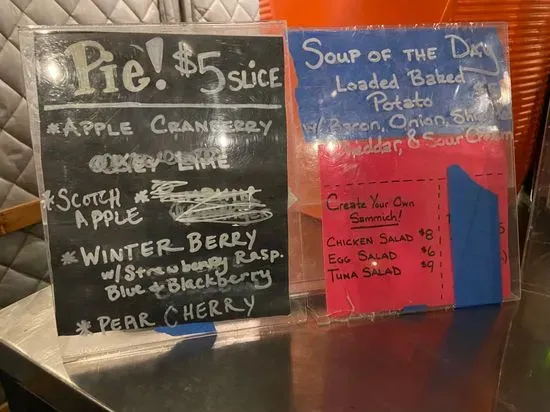 Pie! $5 SLICE
*APPLE CRANBERRY
KEY LIME
*SCOTCH APPLE
*
*WINTER BERRY
w/ Strawberry Rasp.
Blue & Blackberry
*PEAR CHERRY
SOUP OF THE DAY
Loaded Baked
Potato
w/ Bacon, Onion,
Cheddar, & Sour Cream
Create Your Own
Sammich!
CHICKEN SALAD $8
EGG SALAD $6
TUNA SALAD $9